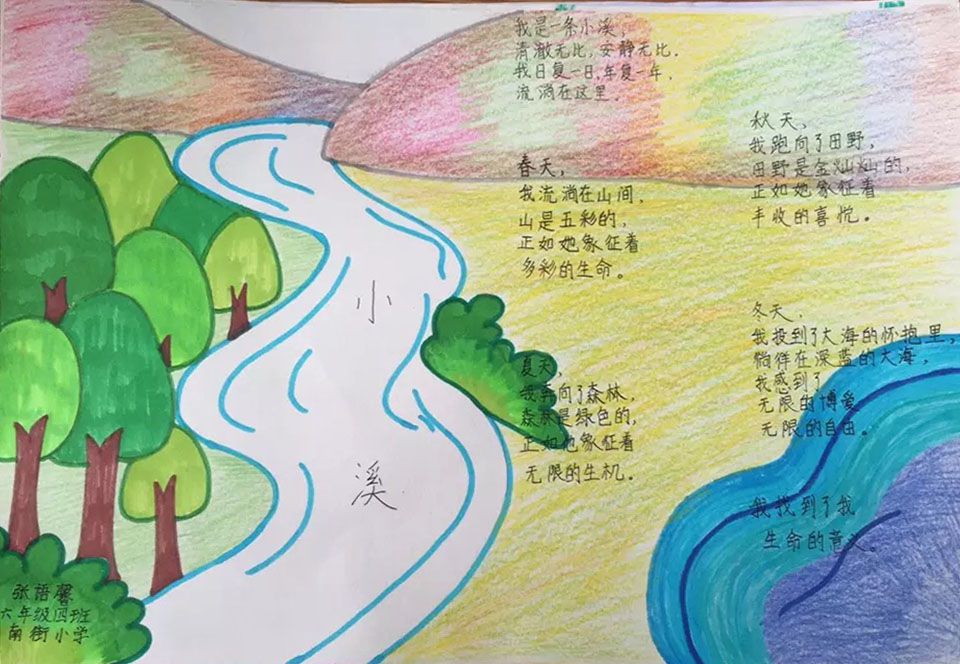 小溪
我是一条小溪，
清澈无比，安静无比。
我日复一日，年复一年，
流淌在这里。
春天，
我流淌在山间，
山是五彩的，
正如她象征着
多彩的生命。
夏天，
我奔向了森林，
森林是绿色的，
正如他象征着
无限的生机。
秋天，
我跑向了田野，
田野是金灿灿的，
正如她象征着
丰收的喜悦。
冬天，
我投到了大海的怀抱里，
徜徉在深蓝的大海，
我感到了
无限的博爱
无限的自由。
我找到了我
生命的意义。
张语馨
六年级四班
南街小学